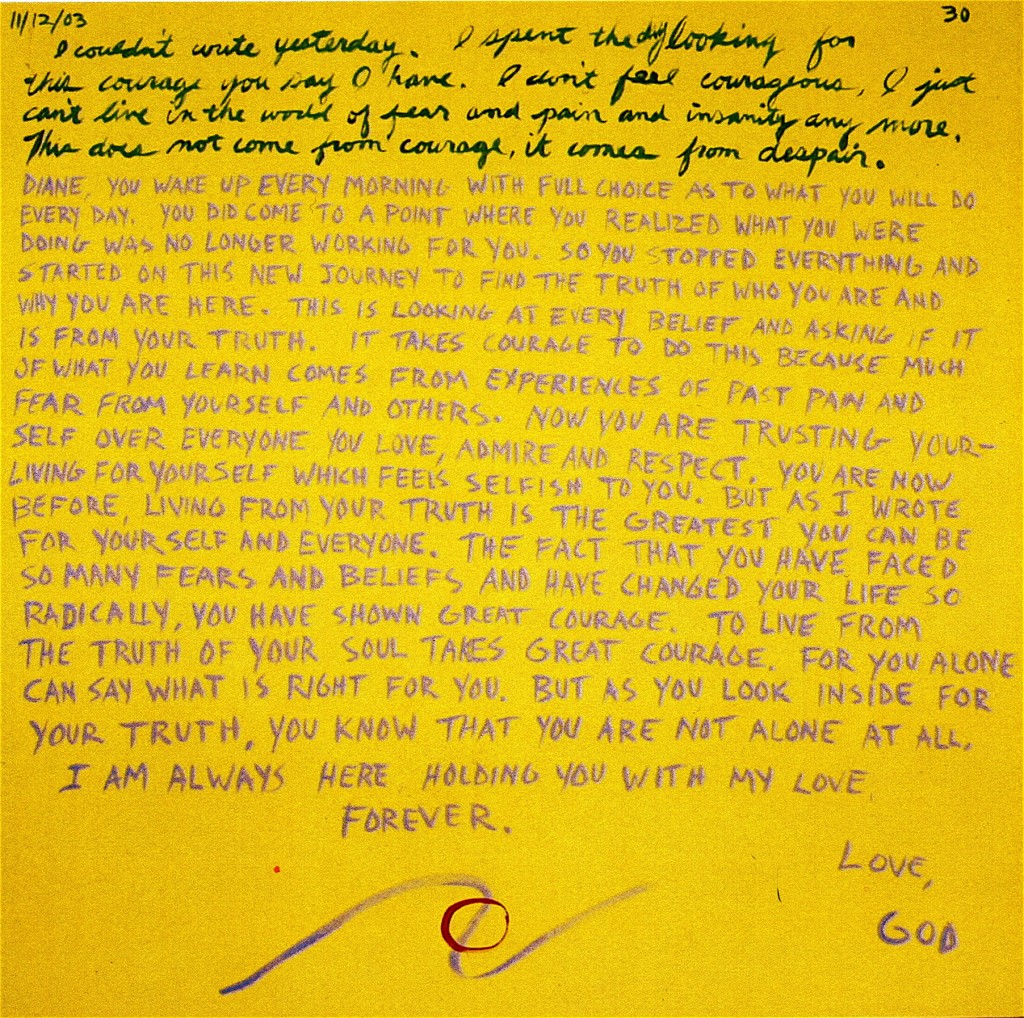 11/12/03 30
I couldn't write yesterday. I spent the day looking for
this courage you say I have. I don't feel courageous, I just
can't live in the world of fear and pain and insanity any more.
This does not come from courage, it comes from despair.
DIANE, YOU WAKE UP EVERY MORNING WITH FULL CHOICE AS TO WHAT YOU WILL DO
EVERY DAY. YOU DID COME TO A POINT WHERE YOU REALIZED WHAT YOU WERE
DOING WAS NO LONGER WORKING FOR YOU. SO YOU STOPPED EVERYTHING AND
STARTED ON THIS NEW JOURNEY TO FIND THE TRUTH OF WHO YOU ARE AND
WHY YOU ARE HERE. THIS IS LOOKING AT EVERY BELIEF AND ASKING IF IT
IS FROM YOUR TRUTH. IT TAKES COURAGE TO DO THIS BECAUSE MUCH
OF WHAT YOU LEARN COMES FROM EXPERIENCES OF PAST PAIN AND
FEAR FROM YOURSELF AND OTHERS. NOW YOU ARE TRUSTING YOUR-
SELF OVER EVERYONE YOU LOVE, ADMIRE AND RESPECT. YOU ARE NOW
LIVING FOR YOURSELF WHICH FEELS SELFISH TO YOU. BUT AS I WROTE
BEFORE, LIVING FROM YOUR TRUTH IS THE GREATEST YOU CAN BE
FOR YOURSELF AND EVERYONE. THE FACT THAT YOU HAVE FACED
SO MANY FEARS AND BELIEFS AND HAVE CHANGED YOUR LIFE SO
RADICALLY, YOU HAVE SHOWN GREAT COURAGE. TO LIVE FROM
THE TRUTH OF YOUR SOUL TAKES GREAT COURAGE. FOR YOU ALONE
CAN SAY WHAT IS RIGHT FOR YOU. BUT AS YOU LOOK INSIDE FOR
YOUR TRUTH, YOU KNOW THAT YOU ARE NOT ALONE AT ALL.
I AM ALWAYS HERE HOLDING YOU WITH MY LOVE
FOREVER.
LOVE,
GOD